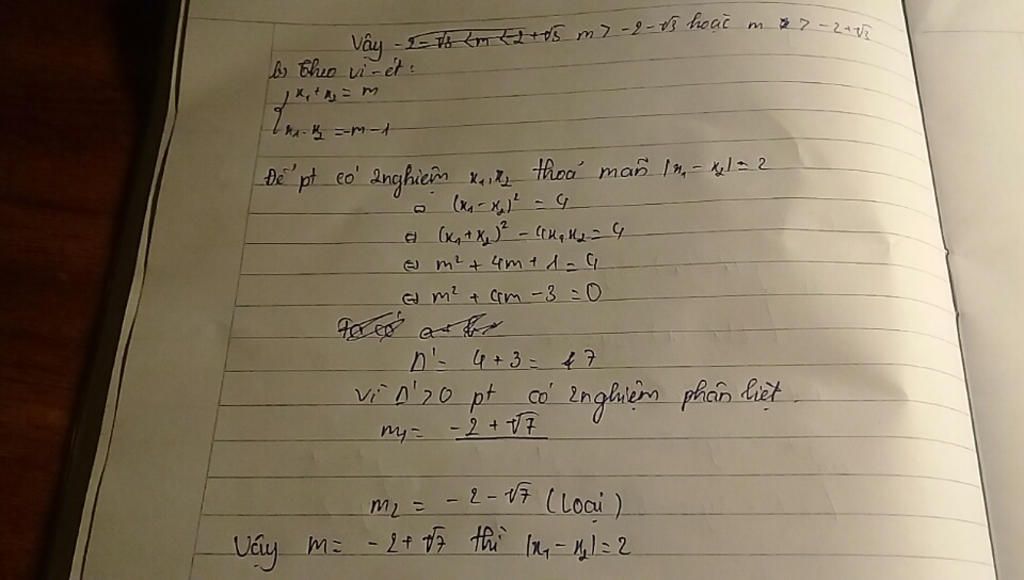 Vậy -2-√3 < m < 2+√3 m > -2-√3 hoặc m > -2+√3
b) Theo vi-ét:
x₁ + x₂ = m
x₁ . x₂ = -m - 1
Để pt có 2 nghiệm x₁, x₂ thoả mãn |x₁ - x₂| = 2
⇔ (x₁ - x₂)² = 4
⇔ (x₁ + x₂)² - 4x₁x₂ = 4
⇔ m² + 4m + 1 = 4
⇔ m² + 4m - 3 = 0
Δ' = 4 + 3 = 7
Vì Δ' > 0 pt có 2 nghiệm phân biệt.
m₁ = -2 + √7
m₂ = -2 - √7 (Loại)
Vậy m = -2 + √7 thì |x₁ - x₂| = 2